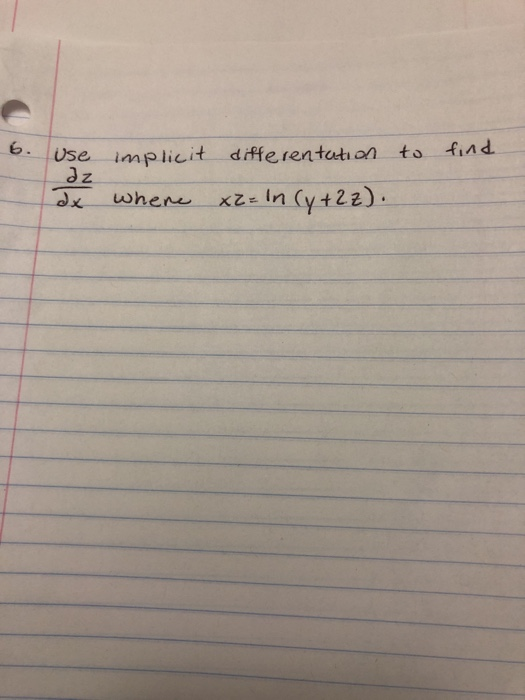 6. Use implicit differentation to find
∂z
∂x where xz = ln (y+2z).